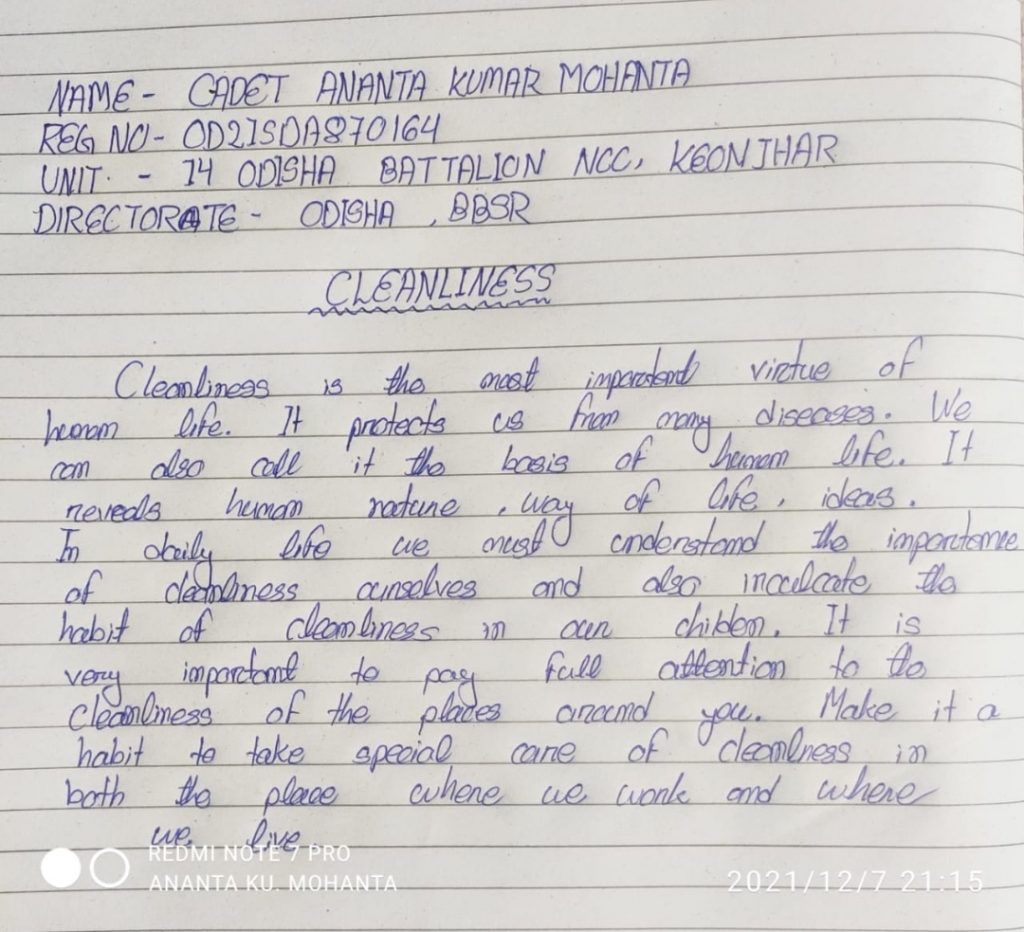 NAME - CADET ANANTA KUMAR MOHANTA
REG NO - OD21SDA870164
UNIT. - 14 ODISHA BATTALION NCC, KEONJHAR
DIRECTORATE - ODISHA , BBSR
CLEANLINESS
Cleanliness is the most important virtue of
human life. It protects us from many diseases. We
can also call it the basis of human life. It
reveals human nature , way of life , ideas .
In daily life we must understand the importance
of cleanliness ourselves and also inculcate the
habit of cleanliness in our childen. It is
very important to pay full attention to the
cleanliness of the places around you. Make it a
habit to take special care of cleanlness in
both the place where we work and where
we live.
REDMI NOTE 7 PRO
ANANTA KU. MOHANTA
2021/12/7 21:15